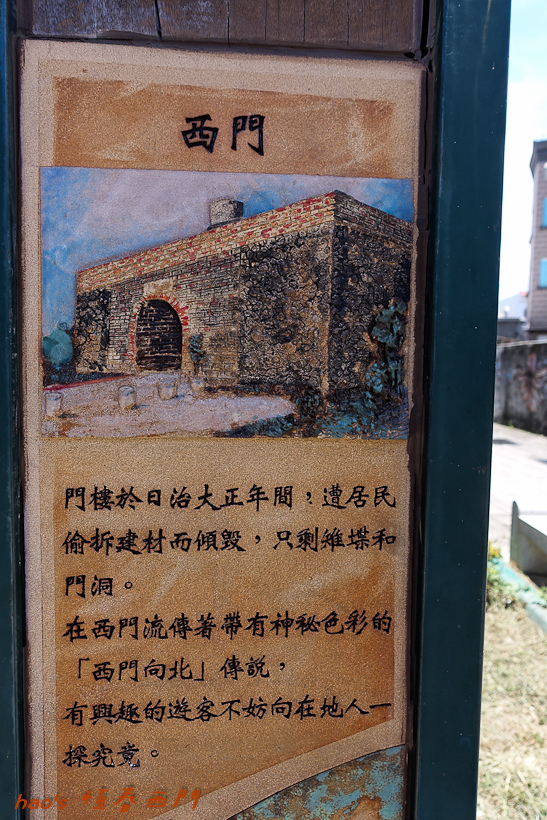 西門
門樓於日治大正年間，遭居民
偷拆建材而傾毀，只剩雉堞和
門洞。
在西門流傳著帶有神秘色彩的
「西門向北」傳說，
有興趣的遊客不妨向在地人一
探究竟。
hao's 恆春西門